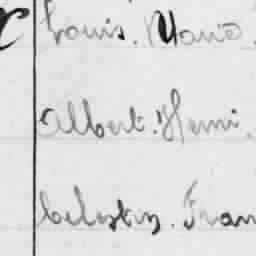 Louis. Marie.
Albert. Henri.
Celestin. Fran